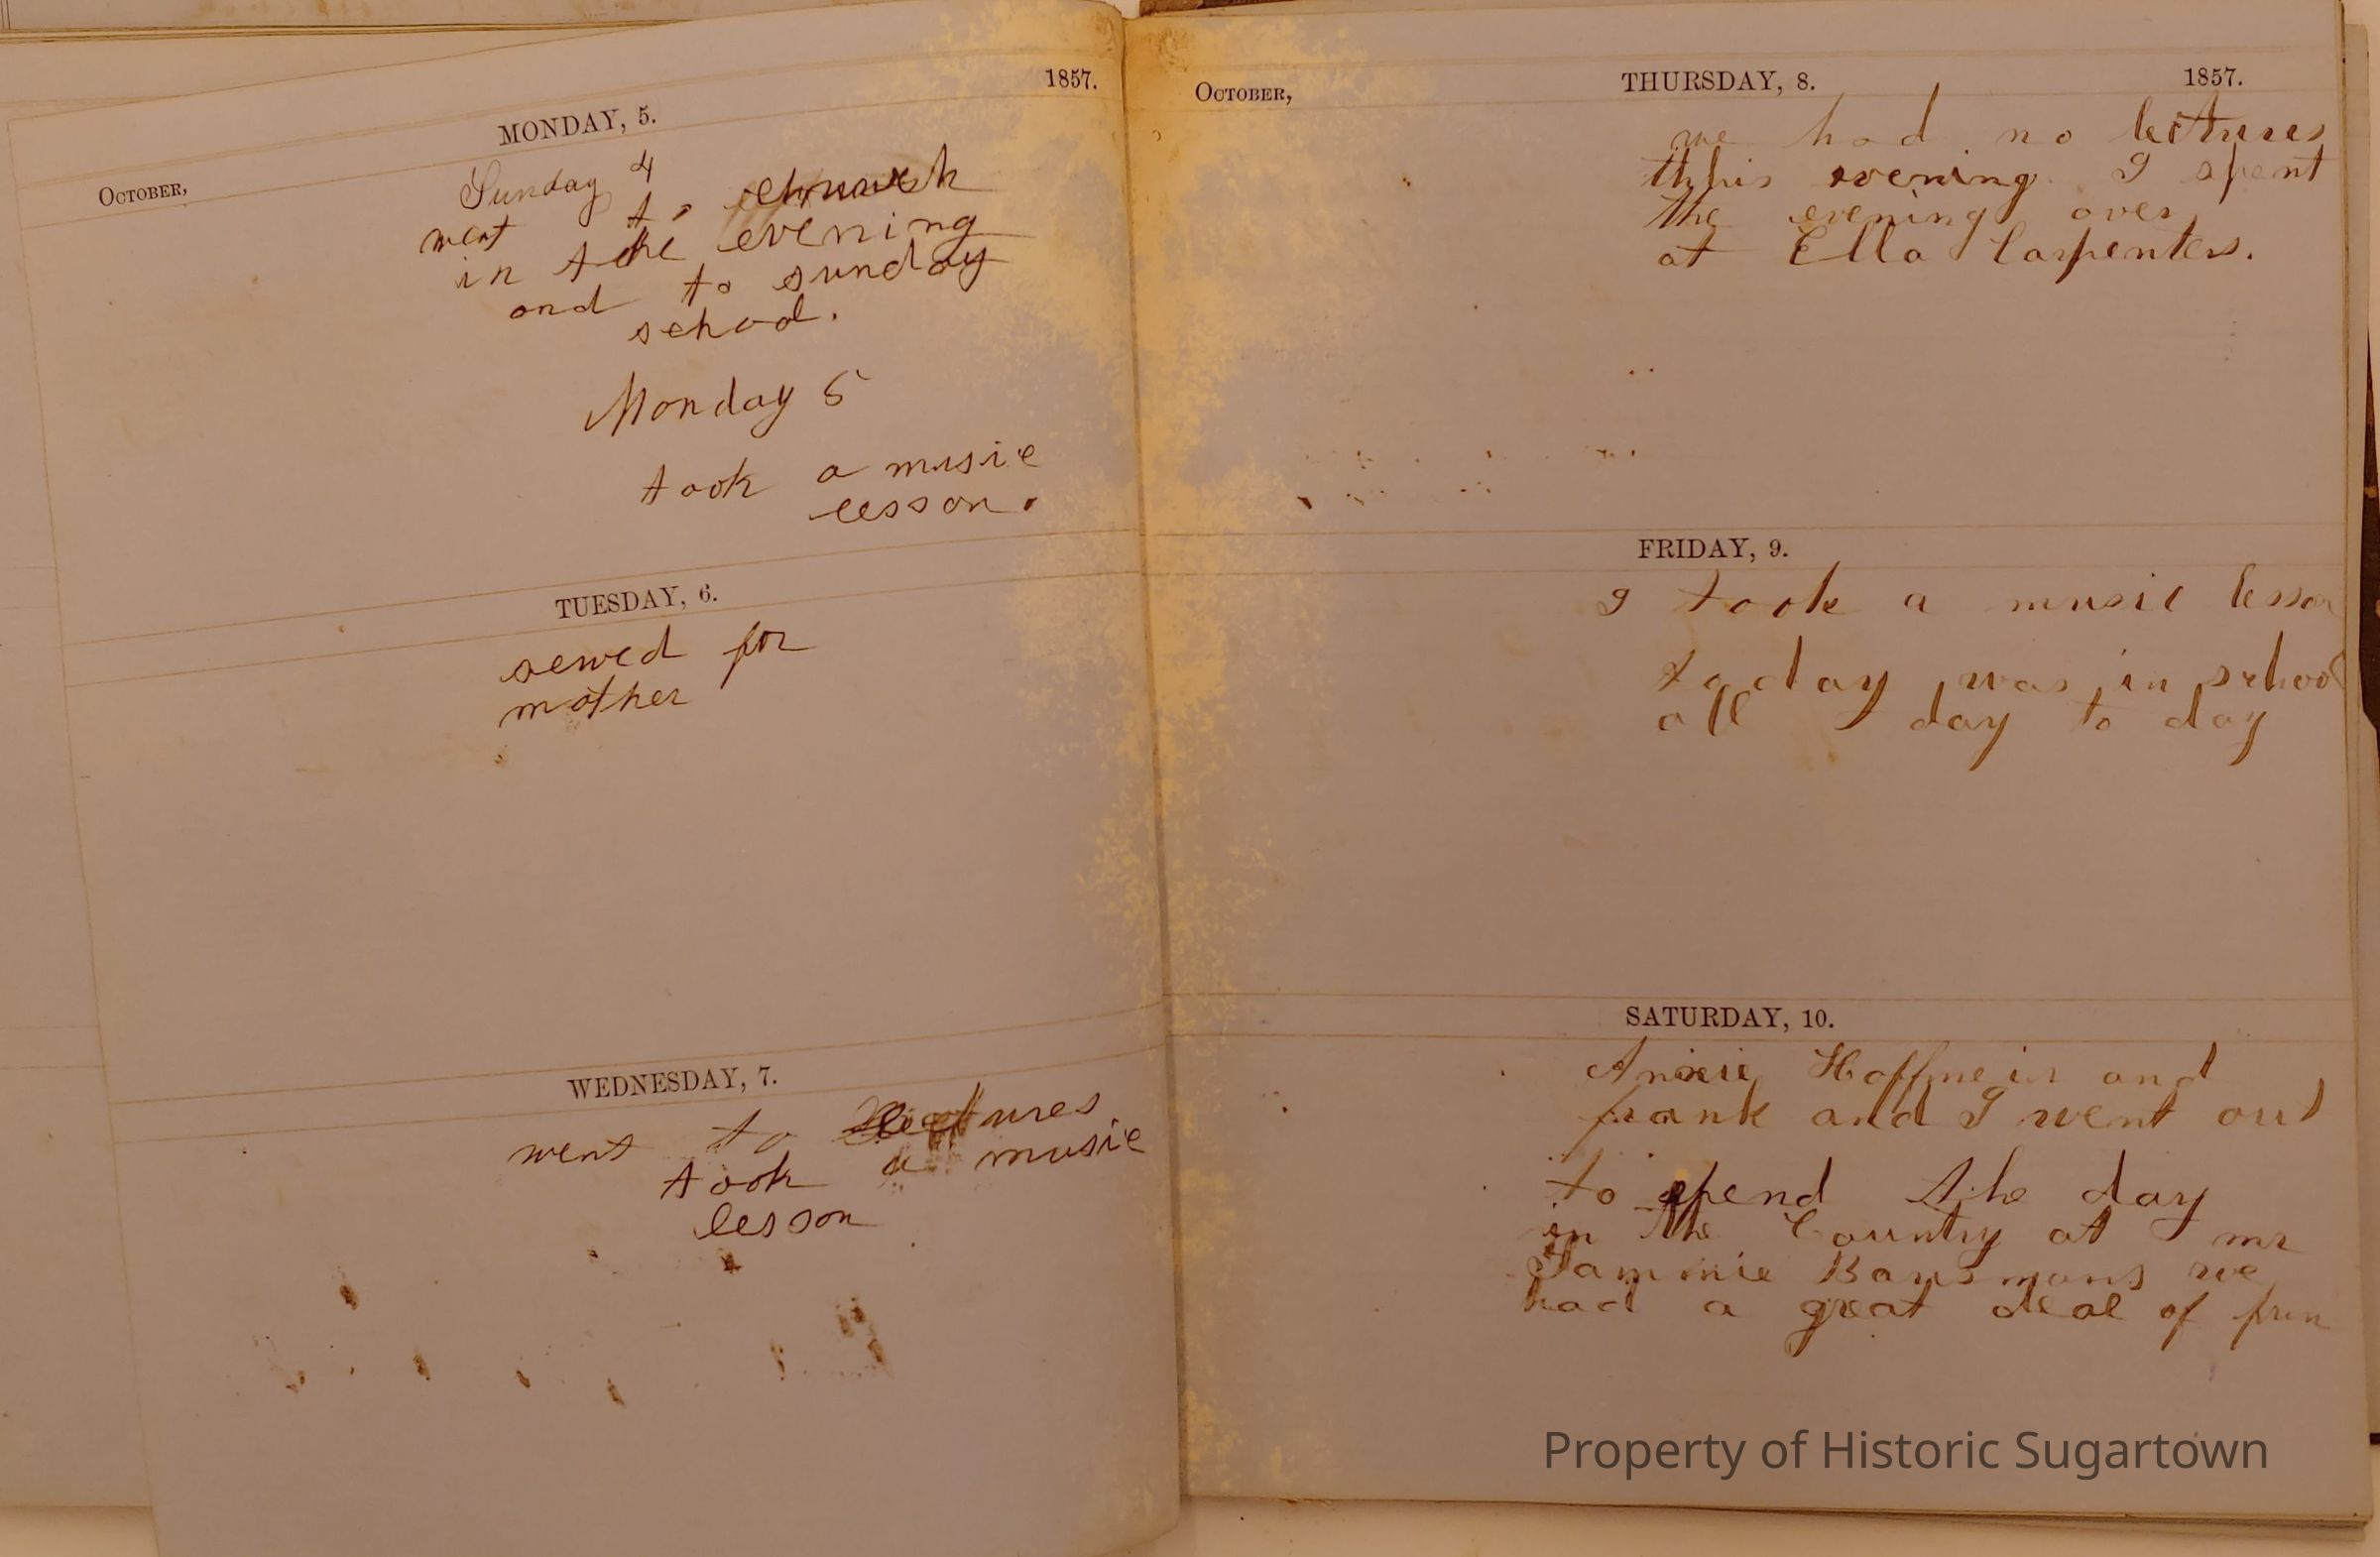 October,
MONDAY, 5.
1857.
Sunday 4
went to church
in the evening
and to sunday
school.
Monday 5
took a music
lesson.
TUESDAY, 6.
sewed for
mother
WEDNESDAY, 7.
went to lectures
took a music
lesson
October,
THURSDAY, 8.
1857.
we had no lectures
this evening. I spent
the evening over
at Ella Carpenters.
FRIDAY, 9.
I took a music lesson
to day was in school
all day to day
SATURDAY, 10.
Annie Hoffmeir and
frank and I went out
to spend the day
in the Country at mr
Sammie Bausmans we
had a great deal of fun
Property of Historic Sugartown